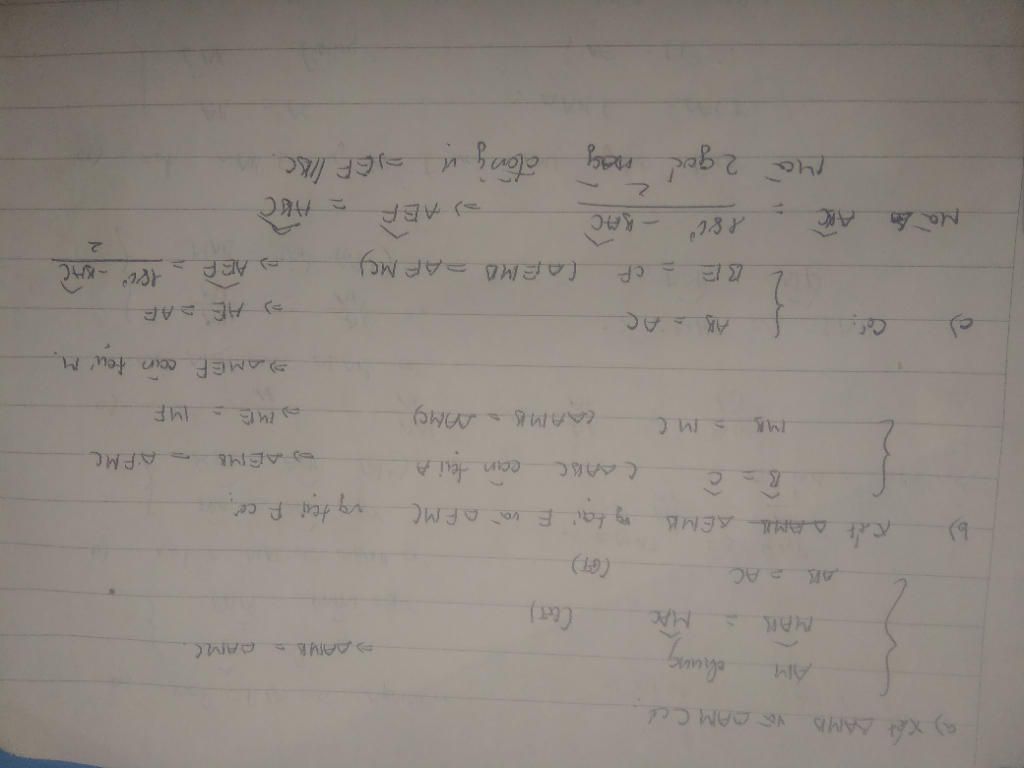 a) Xét ΔAMB và ΔAMC có:
AM chung
MAB^ = MAC^ (GT) ⇒ ΔAMB = ΔAMC.
AB = AC (GT)
b) Xét ΔEMB vg tại E và ΔFMC vg tại F có:
B^ = C^ (ΔABC cân tại A ⇒ ΔEMB = ΔFMC
MB = MC (ΔAMB = ΔAMC) ⇒ ME = MF
⇒ ΔMEF cân tại M.
c) Có: AB = AC ⇒ AE = AF
BE = CF (ΔEMB = ΔFMC) ⇒ AEF^ = (180° - BAC^)/2
Mà ABC^ = (180° - BAC^)/2 ⇒ AEF^ = ABC^
Mà 2 góc này đồng vị ⇒ EF // BC.